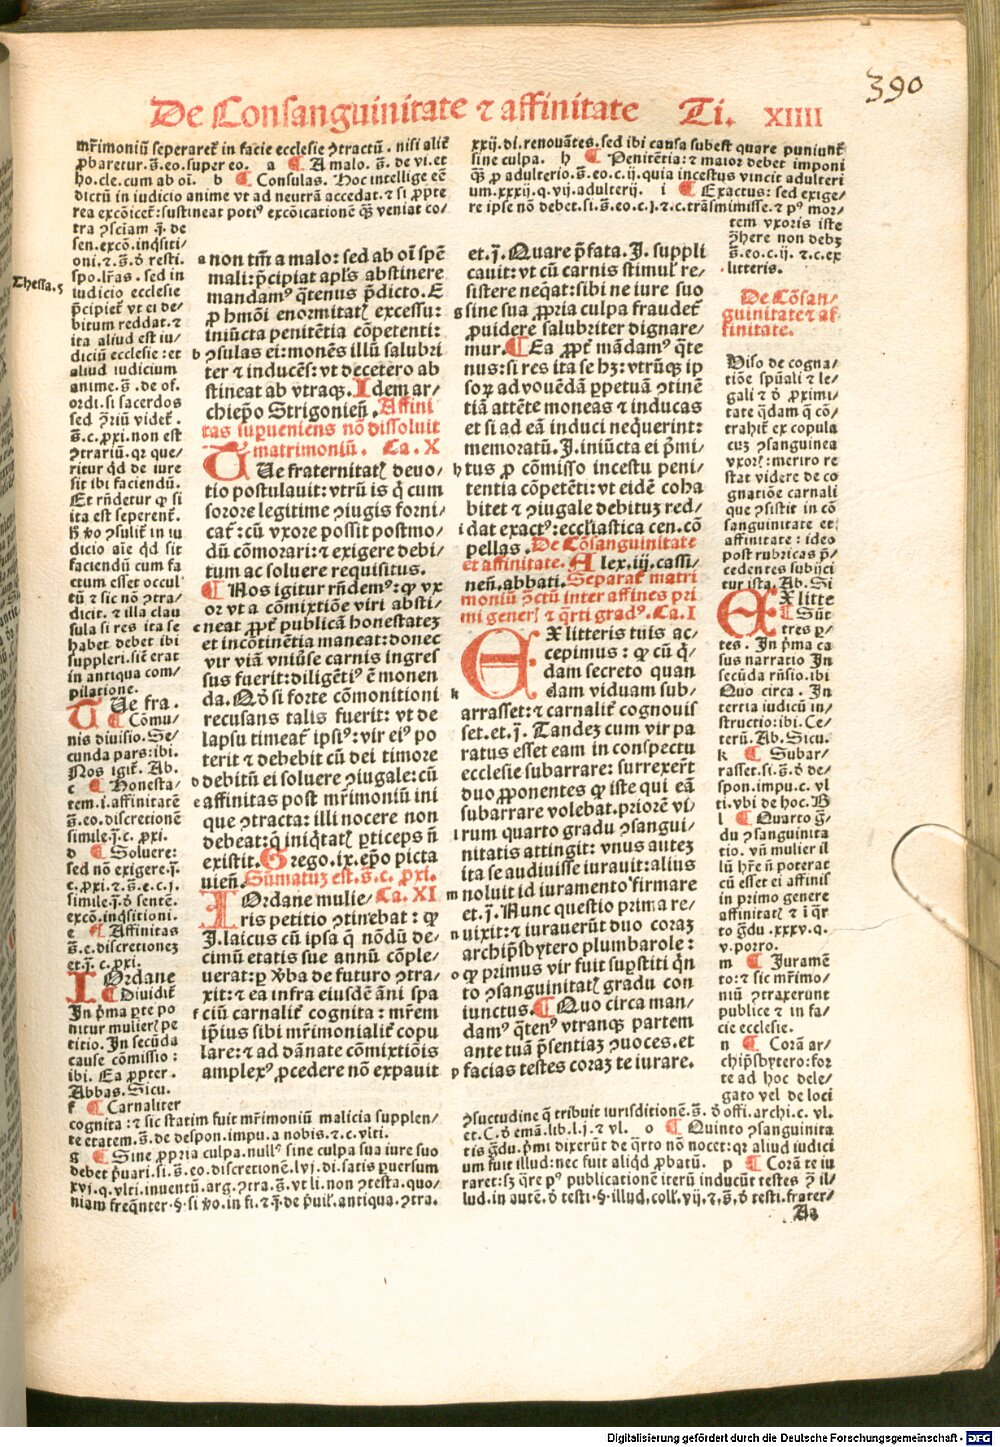 390
De Consanguinitate ⁊ affinitate Ti. XIIII
mr̄imoniū seperaret̄ in facie ecclesie ꝯtractū . nisi aliꝫ
ꝓbaretur.s̄.eo.super eo. a ¶ A malo. s̄. de vi.et
ho.cle.cum ab oī. b ¶ Consulas. Hoc intellige eē
dictū in iudicio anime vt ad neutrā accedat.⁊ si ꝓpte
rea excōicet̄:sustineat poti⁹ excōicationē q̄ꝫ veniat co/
tra ꝯsciam .j̄. de
sen.excō.inq̄siti/
oni.⁊.s̄.ō resti.
spo.lr̄as. sed in
iudicio ecclesie
p̄cipiet̄ vt ei de/
bitum reddat.⁊
ita aliud est iu/
diciū ecclesie:et
aliud iudicium
anime.s̄.de of.
ordi.si sacerdos
sed ꝯ̄riū videt̄.
s̄.c.ꝓxi.non est
ꝯtrariū.qꝛ que/
ritur qd̄ de iure
sit ibi faciendū.
Et rn̄detur ꝙ si
ita est seperent̄.
h̄ ꝟo ꝯsulit̄ in iu
dicio aīe qd̄ sit
faciendū cum fa
ctum esset occul
tū ⁊ sic nō ꝯtra/
dicit. ⁊ illa clau
sula si res ita se
habet debet ibi
suppleri.sic̄ erat
in antiqua com/
pilatione.
TUe fra.
¶ Cōmu/
nis diuisio. Se/
cunda pars:ibi.
Nos igit̄. Ab.
c ¶ Honesta/
tem.i.affinitatē
s̄.eo.discretionē
simile.j̄.c. ꝓxi.
d ¶ Soluere:
sed nō exigere.j̄.
c.ꝓxi.⁊.s̄.e.c.j.
simile.j̄.ō sentē.
excō.inq̄sitioni.
e ¶ Affinitas
s̄.e.discretioneꝫ
et.j̄.c.ꝓxi.
IOrdane
¶ Diuidit̄
In p̄ma ꝑte po
nitur mulierꝭ pe
titio. In secūda
cause cōmissio:
ibi. Ea ꝓpter.
Abbas. Sicu.
f ¶ Carnaliter
cognita:⁊ sic statim fuit mr̄imoniū malicia supplen/
te etatem.s̄.de despon.impu.a nobis.⁊.c.vlti.
g ¶ Sine ꝓpria culpa.null⁹ sine culpa sua iure suo
debet p̄uari.si.s̄.eo.discretionē.lvj.di.satis ꝑuersum
xvi.q.vlti.inuentū.arg.ꝯtra.s̄.vt li.non ꝯtesta.quo/
niam freqn̄ter.§.si ꝟo.in fi.⁊.j̄.de p̄uil̄.antiqua.ꝯtra.
Thessa.5
a non tm̄ a malo: sed ab oī spē
mali:p̄cipiat apl̄s abstinere
mandam⁹ q̄tenus p̄dicto.E
ꝓ hmōi enormitatꝭ excessu:
iniūcta penitētia cōpetenti:
b ꝯsulas ei:monēs illū salubri
ter ⁊ inducēs: vt decetero ab
stineat ab vtraqꝫ.Idem ar/
chiep̄o Strigonieñ.Affini
tas iuꝑueniens nō dissoluit
matrimoniū. Ca.X
TUe fraternitatꝭ deuo/
tio postulauit: vtrū is q̄ cum
sorore legitime ꝯiugis forni/
cat̄: cū vxore possit postmo/
dū cōmorari:⁊ exigere debi/
tum ac soluere requisitus.
¶ Nos igitur rn̄dem⁹:ꝙ vx
or vt a cōmixtiōe viri absti/
c neat ꝓpt̄ publicā honestateꝫ
et incōtinētia maneat:donec
vir viā vniūse carnis ingres
sus fuerit:diligēti⁹ ē monen
da.Nō si forte cōmonitioni
recusans talis fuerit: vt de
lapsu timeat̄ ipsi⁹: vir ei⁹ po
terit ⁊ debebit cū dei timore
d debitū ei soluere ꝯiugale:cū
e affinitas post mr̄imoniū ini
que ꝯtracta: illi nocere non
debeat:q̄ iniq̄tatꝭ ꝑticeps ñ
existit.Grego.ix.ep̄o picta
uieñ.Sūmatuꝫ est.s̄.c. ꝓxi.
IOrdane mulie/ Ca. XI
ris petitio ꝯtinebat : ꝙ
J.laicus cū ipsa q̄ nōdū de/
cimū etatis sue annū cōple/
uerat: ꝑ v̄ba de futuro ꝯtra/
xit:⁊ ea infra eiusdē āni spa
f ciū carnalit̄ cognita : mr̄em
ip̄ius sibi mr̄imonialit̄ copu
lare:⁊ ad dānate cōmixtiōis
amplex⁹ ꝓcedere nō expauit
xxij.di.renouātes.sed ibi causa subest quare puniunt̄
sine culpa. h ¶ Penitētia:⁊ maior debet imponi
q̄ꝫ ꝓ adulterio.s̄.eo.c.ij.quia incestus vincit adulteri
um.xxxij.q.vij.adulterij. i ¶ Exactus: sed exige/
re ipse nō debet.si.s̄.eo.c.j.⁊.c.trāsmimisse.⁊ p⁹ mor/
tem vxoris iste
ꝯ̄here non debꝫ
s̄.eo.c.ij. ⁊.c.ex
litteris.
et.j̄.Quare p̄fata.J.suppli
cauit: vt cū carnis stimul̄ re/
sistere neq̄at:sibi ne iure suo
g sine sua ꝓpria culpa fraudet̄
ꝓuidere salubriter dignare/
mur.¶ Ea ꝓpt̄ mādam⁹ q̄te
nus:si res ita se hꝫ: vtrūqꝫ ip
soꝝ ad vouēdā ꝑpetuā ꝯtinē
tiā attēte moneas ⁊ inducas
et si ad eā induci neq̄uerint:
memoratū.J.iniūcta ei p̄mi/
h tus ꝓ cōmisso incestu peni/
tentia cōpetēti: vt eidē coha
bitet ⁊ ꝯiugale debituꝫ red/
i dat exact⁹:eccl̄iastica cen.cō
pellas.De Cōsanguinitate
et affinitate.Alex.iij.cassi/
neñ.abbati.Separat̄ matri
moniū ꝯ̄ctū inter affines pri
mi generꝭ ⁊ q̄rti grad⁹.Ca.I
EX litteris tuis ac/
cepimus: ꝙ cū q̄/
dam secreto quan
k dam viduam sub/
arrasset:⁊ carnalit̄ cognouis
set.et.j̄. Tandeꝫ cum vir pa
ratus esset eam in conspectu
ecclesie subarrare: surrexer̄t
duo ꝓponentes ꝙ iste qui eā
subarrare volebat.priorē vi/
l rum quarto gradu ꝯsangui/
nitatis attingit: vnus auteꝫ
ita se audiuisse iurauit:alius
m noluit id iuramento firmare
et.j̄. Nunc questio prima re/
n uixit:⁊ iurauerūt duo coraꝫ
archip̄sbytero plumbarole:
o ꝙ primus vir fuit suꝑstiti q̄n
to ꝯsanguinitatꝭ gradu con
iunctus.¶ Quo circa man/
dam⁹ q̄ten⁹ vtranqꝫ partem
ante tuā p̄sentiaꝫ ꝯuoces.et
p facias testes coraꝫ te iurare.
De Cōsan/
guinitate ⁊ af
finitate.
Viso de cogna/
tiōe spūali ⁊ le/
gali ⁊ ō ꝓximi/
tate q̄dam q̄ cō/
trahit̄ ex copula
cuꝫ ꝯsanguinea
vxorꝭ:merito re
stat videre de co
gnatiōe carnali
que ꝯsistit in cō
sanguinitate et
affinitate : ideo
post rubricas p̄/
cedentes subijci
tur ista. Ab. Si
EX litte
¶ Sūt
tres ꝑ/
tes. In p̄ma ca
sus narratio In
secūda rn̄sio.ibi
Quo circa. In
tertia iudicū in/
structio:ibi. Ce/
terū. Ab. Sicu.
k ¶ Subar/
rasset.si.s̄.ō de/
spon.impu.c. vl
ti. vbi de hoc. B
l ¶ Quarto ḡ/
du ꝯsanguinita
tio. vn̄ mulier il
lū hr̄e ñ poterat
cū esset ei affinis
in primo genere
affinitatꝭ ⁊ ī q̄r
to ḡdu .xxxv.q.
v.porro.
m ¶ Juramē
to:⁊ sic mr̄imo/
niū ꝯtraxerunt
publice ⁊ in fa/
cie ecclesie.
n ¶ Corā ar/
chip̄sbytero:for
te ad hoc dele/
gato vel de loci
ꝯsuctudine q̄ tribuit iurisditionē.s̄. ō offi.archi.c. vl.
et.C.ō emā.lib.l.j.⁊ vl. o ¶ Quinto ꝯsanguinita
tis ḡdu.p̄mi dixerūt de q̄rto nō nocet:qꝛ aliud iudici
um fuit illud:nec fuit aliqd̄ ꝓbatū. p ¶ Corā te iu
raret:sꝫ q̄re p⁹ publicationē iterū inducūt testes ꝯ̄ il/
lud.in autē.ō testi.§.illud.coll̄.vij.⁊.s̄.ō testi.frater/
Aa
Digitalisierung gefördert durch die Deutsche Forschungsgemeinschaft - DFG